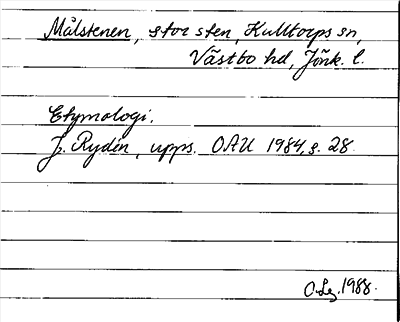 Målstenen, stor sten, Kulltorps sn,
Västbo hd, Jönk. l.
Etymologi.
J. Rydén, upps. OAU 1984, s. 28.
1988.